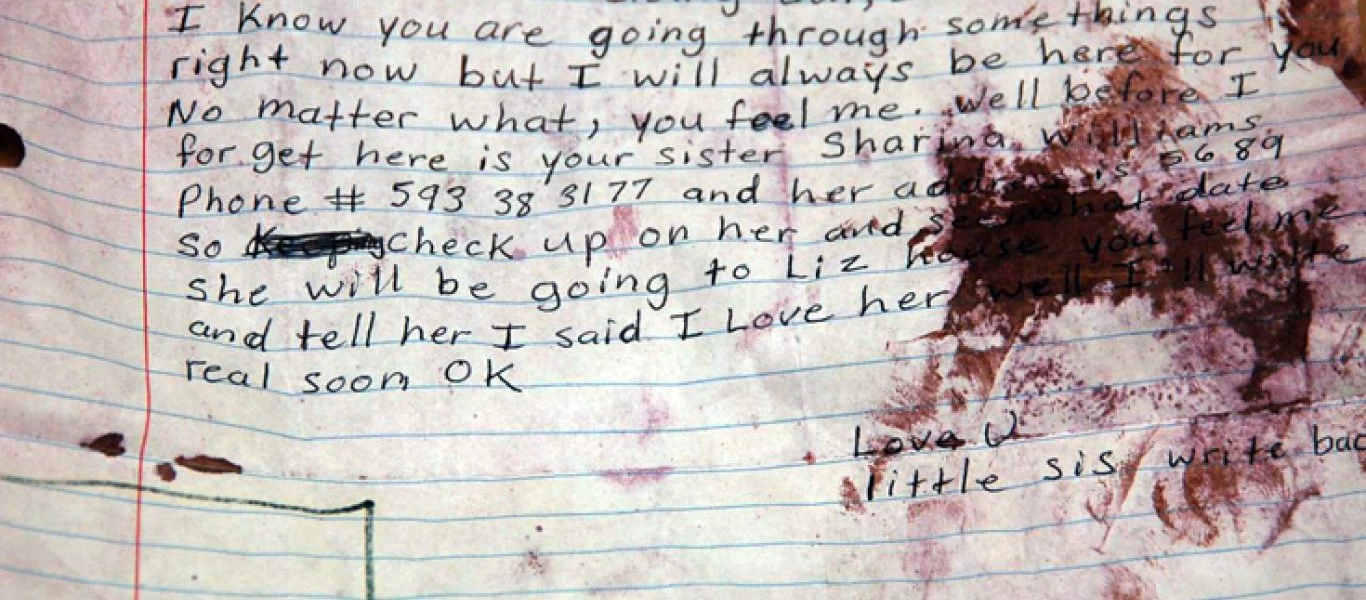 I Know you are going through some things
right now but I will always be here for you
No matter what, you feel me. Well before I
for get here is your sister Sharina Williams
Phone # 593 38 3177 and her address is 5689
so check up on her and see what date
she will be going to Liz house you feel me
and tell her I said I Love her well I'll write
real soon OK
Love U
little sis write bac